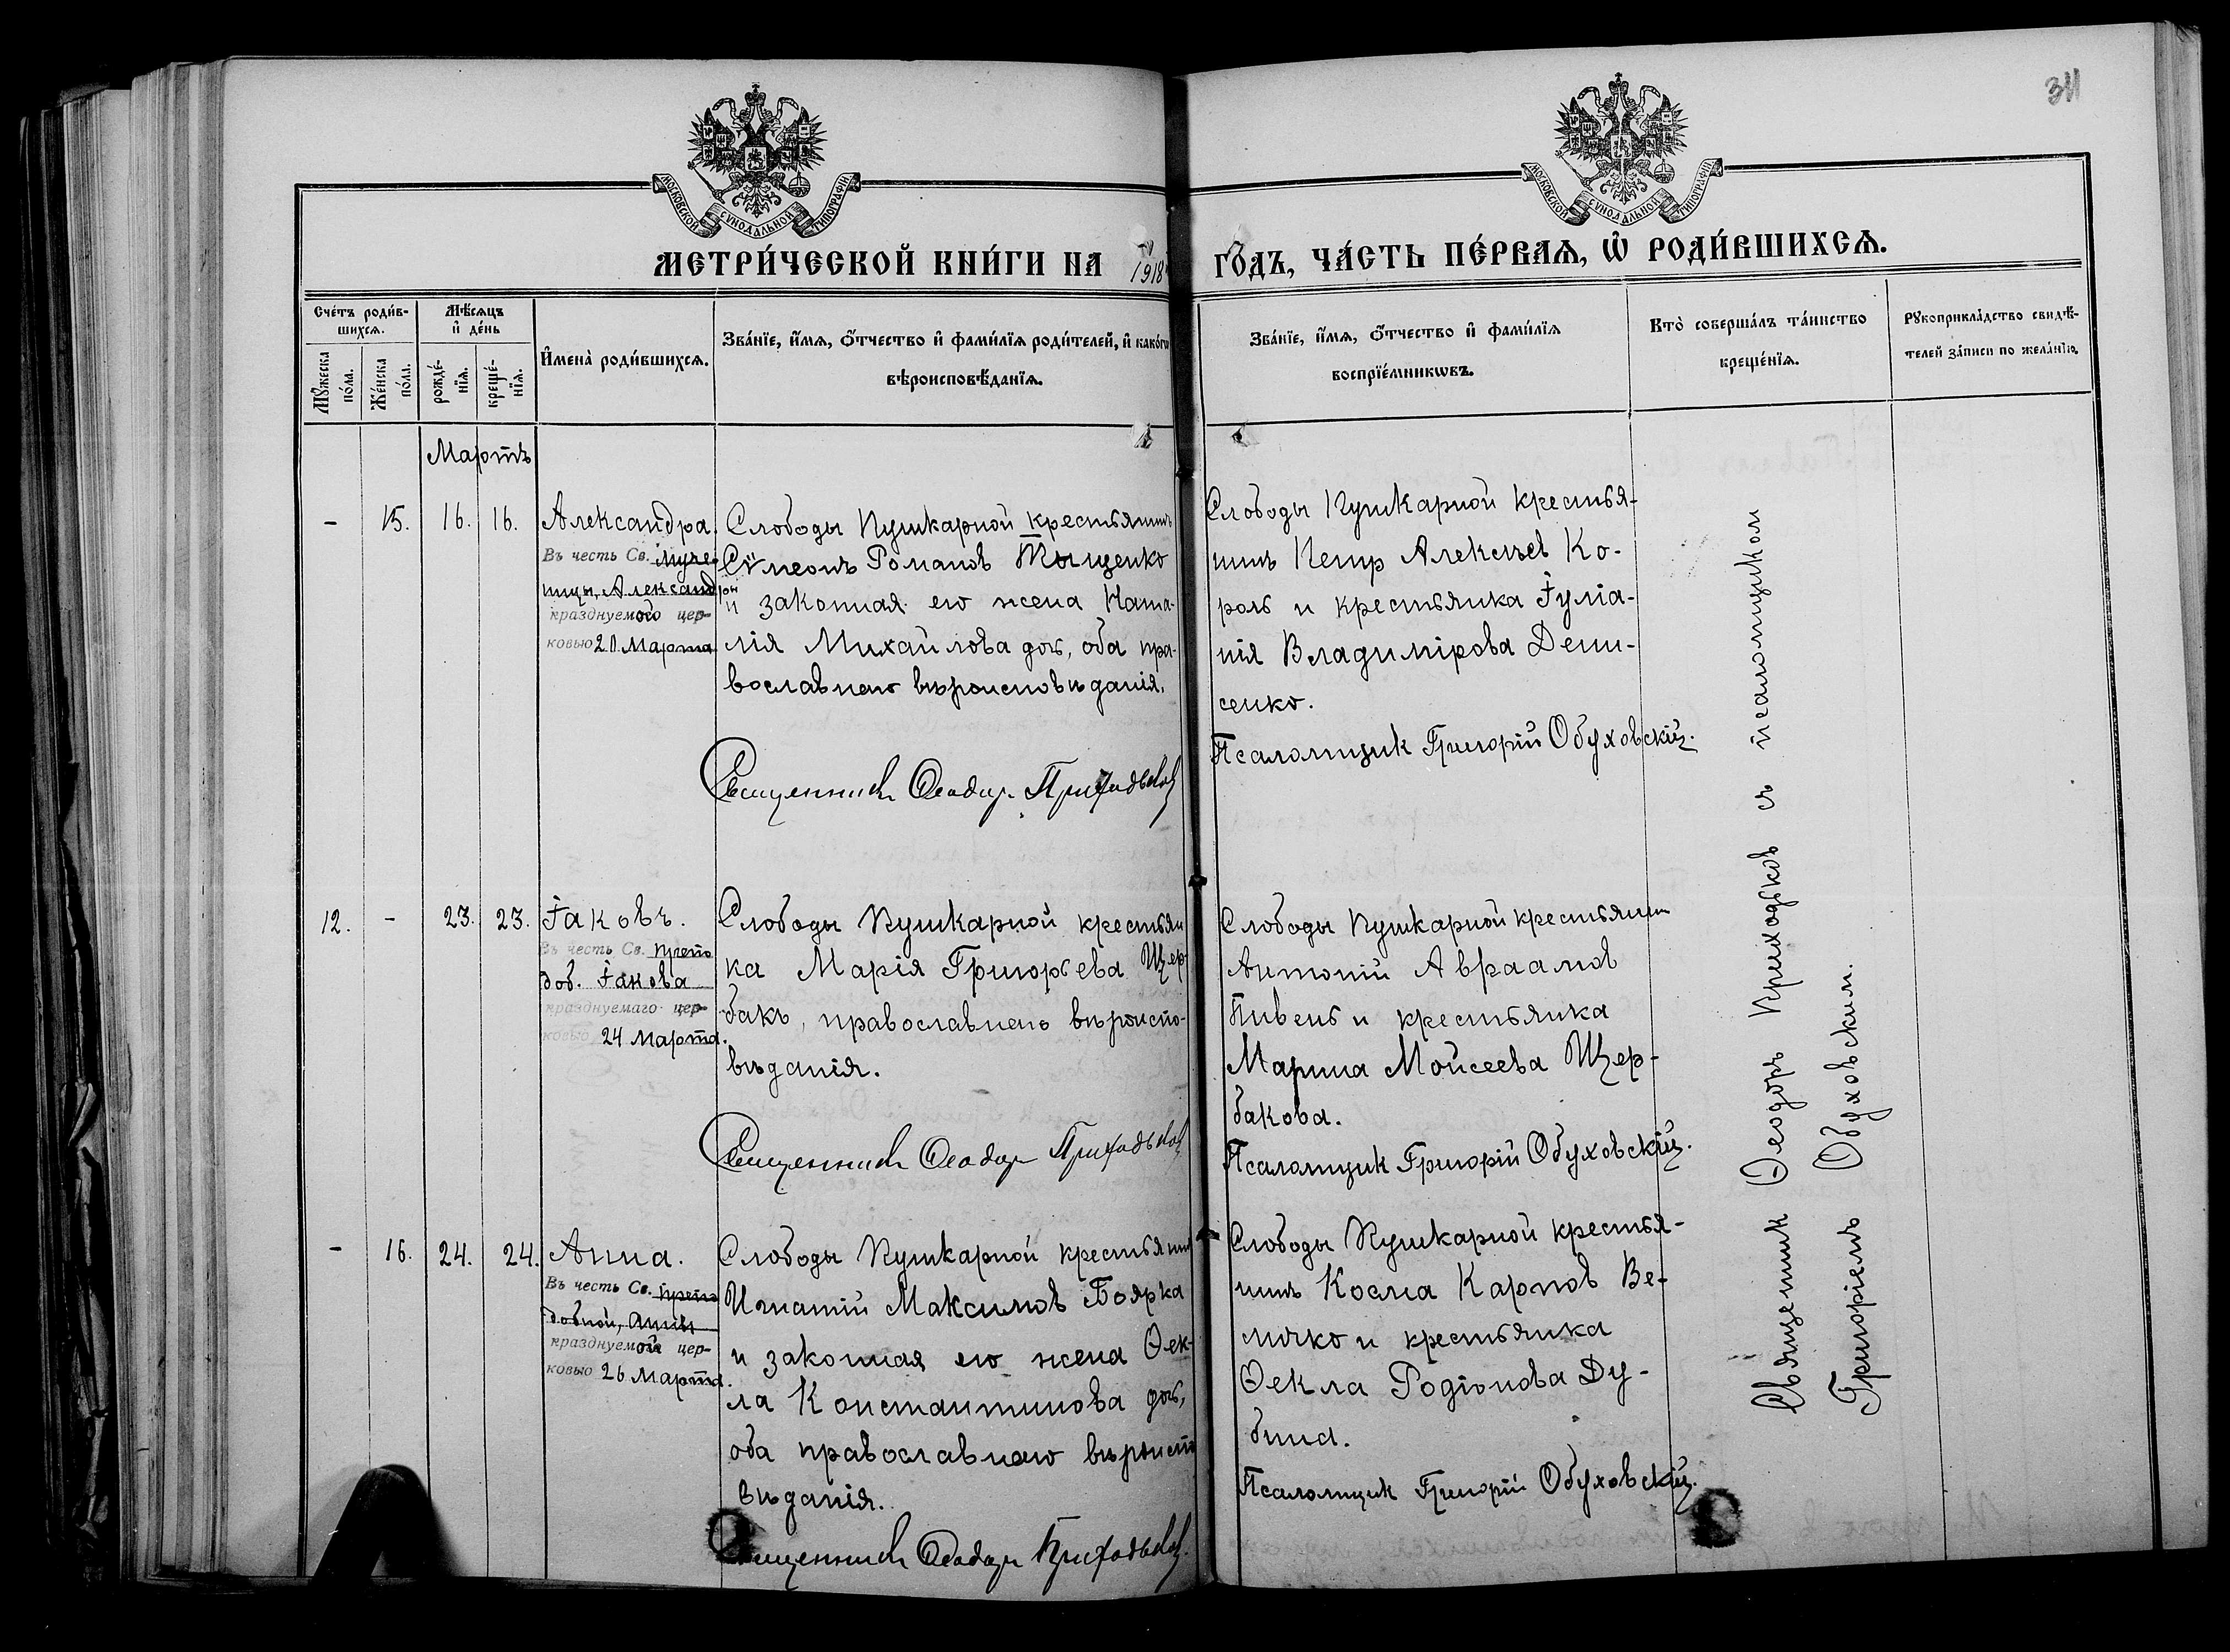 311
МОСКОВСКОЙ СѴНОДАЛЬНОЙ ТИПОГРАФІИ
МОСКОВСКОЙ СѴНОДАЛЬНОЙ ТИПОГРАФІИ
МЕТРИ́ЧЕСКОЙ КНИ́ГИ НА 1918 ГО́ДЪ, ЧА́СТЬ ПЕ́РВАЯ, Ѽ РОДИ́ВШИХСЯ.
Сче́тъ роди́в-
шихся.
Мꙋ́жеска
по́ла.
Же́нска
по́ла.
Мѣ́сяцъ
и҆ де́нь
рожде́-
нїя.
креще́-
нїя.
И҆мена̀ роди́вшихся.
Зва́нїе, и҆́мя, ѻ҆́тчество и҆ фами́лїя роди́телей, и҆ како́гѡ
вѣроисповѣ́данїя.
Зва́нїе, и҆́мя, ѻ҆́тчество и҆ фами́лїя
воспрїе́мникѡвъ.
Кто̀ соверша́лъ та́инство
креще́нїя.
Рꙋкоприкла́дство свидѣ́-
телей за́писи по жела́нїю.
Мартъ
-
15.
16.
16.
Александра.
Въ честь Св. мучен
ицы, Александры
празднуемой цер-
ковью 20 Марта
Слободы Пушкарной крестьянинъ
Сѵмеонъ Романов Тыщенко
и законная его жена Ната-
лія Михайлова дочь, оба пра-
вославнаго вѣроисповѣданія.
Священникъ Ѳеодор Приходьков
Слободы Пушкарной крестья-
нинъ Петр Алексѣев Ко-
роль и крестьянка Іуліа-
нія Владимірова Дени-
сенко.
Псаломщик Григорій Обуховскій.
12.
-
23.
23.
Іаковъ.
Въ честь Св. препо
доб. Іакова
празднуемаго цер-
ковью 24 Марта.
Слободы Пушкарной крестьян
ка Марія Григорьева Щер-
бакъ, православнаго вѣроиспо-
вѣданія.
Священникъ Ѳеодор Приходьков
Слободы Пушкарной крестьянин
Антоній Авраамов
Пивень и крестьянка
Марина Мойсеева Щер-
бакова.
Псаломщик Григорій Обуховскій.
-
16.
24.
24.
Анна.
Въ честь Св. препо
добной, Анны
празднуемой цер-
ковью 26 Марта.
Слободы Пушкарной крестьянин
Игнатій Максимов Боярка
и законная его жена Ѳек-
ла Константинова дочь,
оба православнаго вѣроиспо
вѣданія.
Священникъ Ѳеодор Приходьков.
Слободы Пушкарной крестья-
нинъ Косма Карпов Ве-
личко и крестьянка
Ѳекла Родіонова Ду-
бина.
Псаломщик Григорій Обуховскій.
Священник Ѳеодоръ Приходьков съ псаломщиком
Григоріемъ Обуховским.